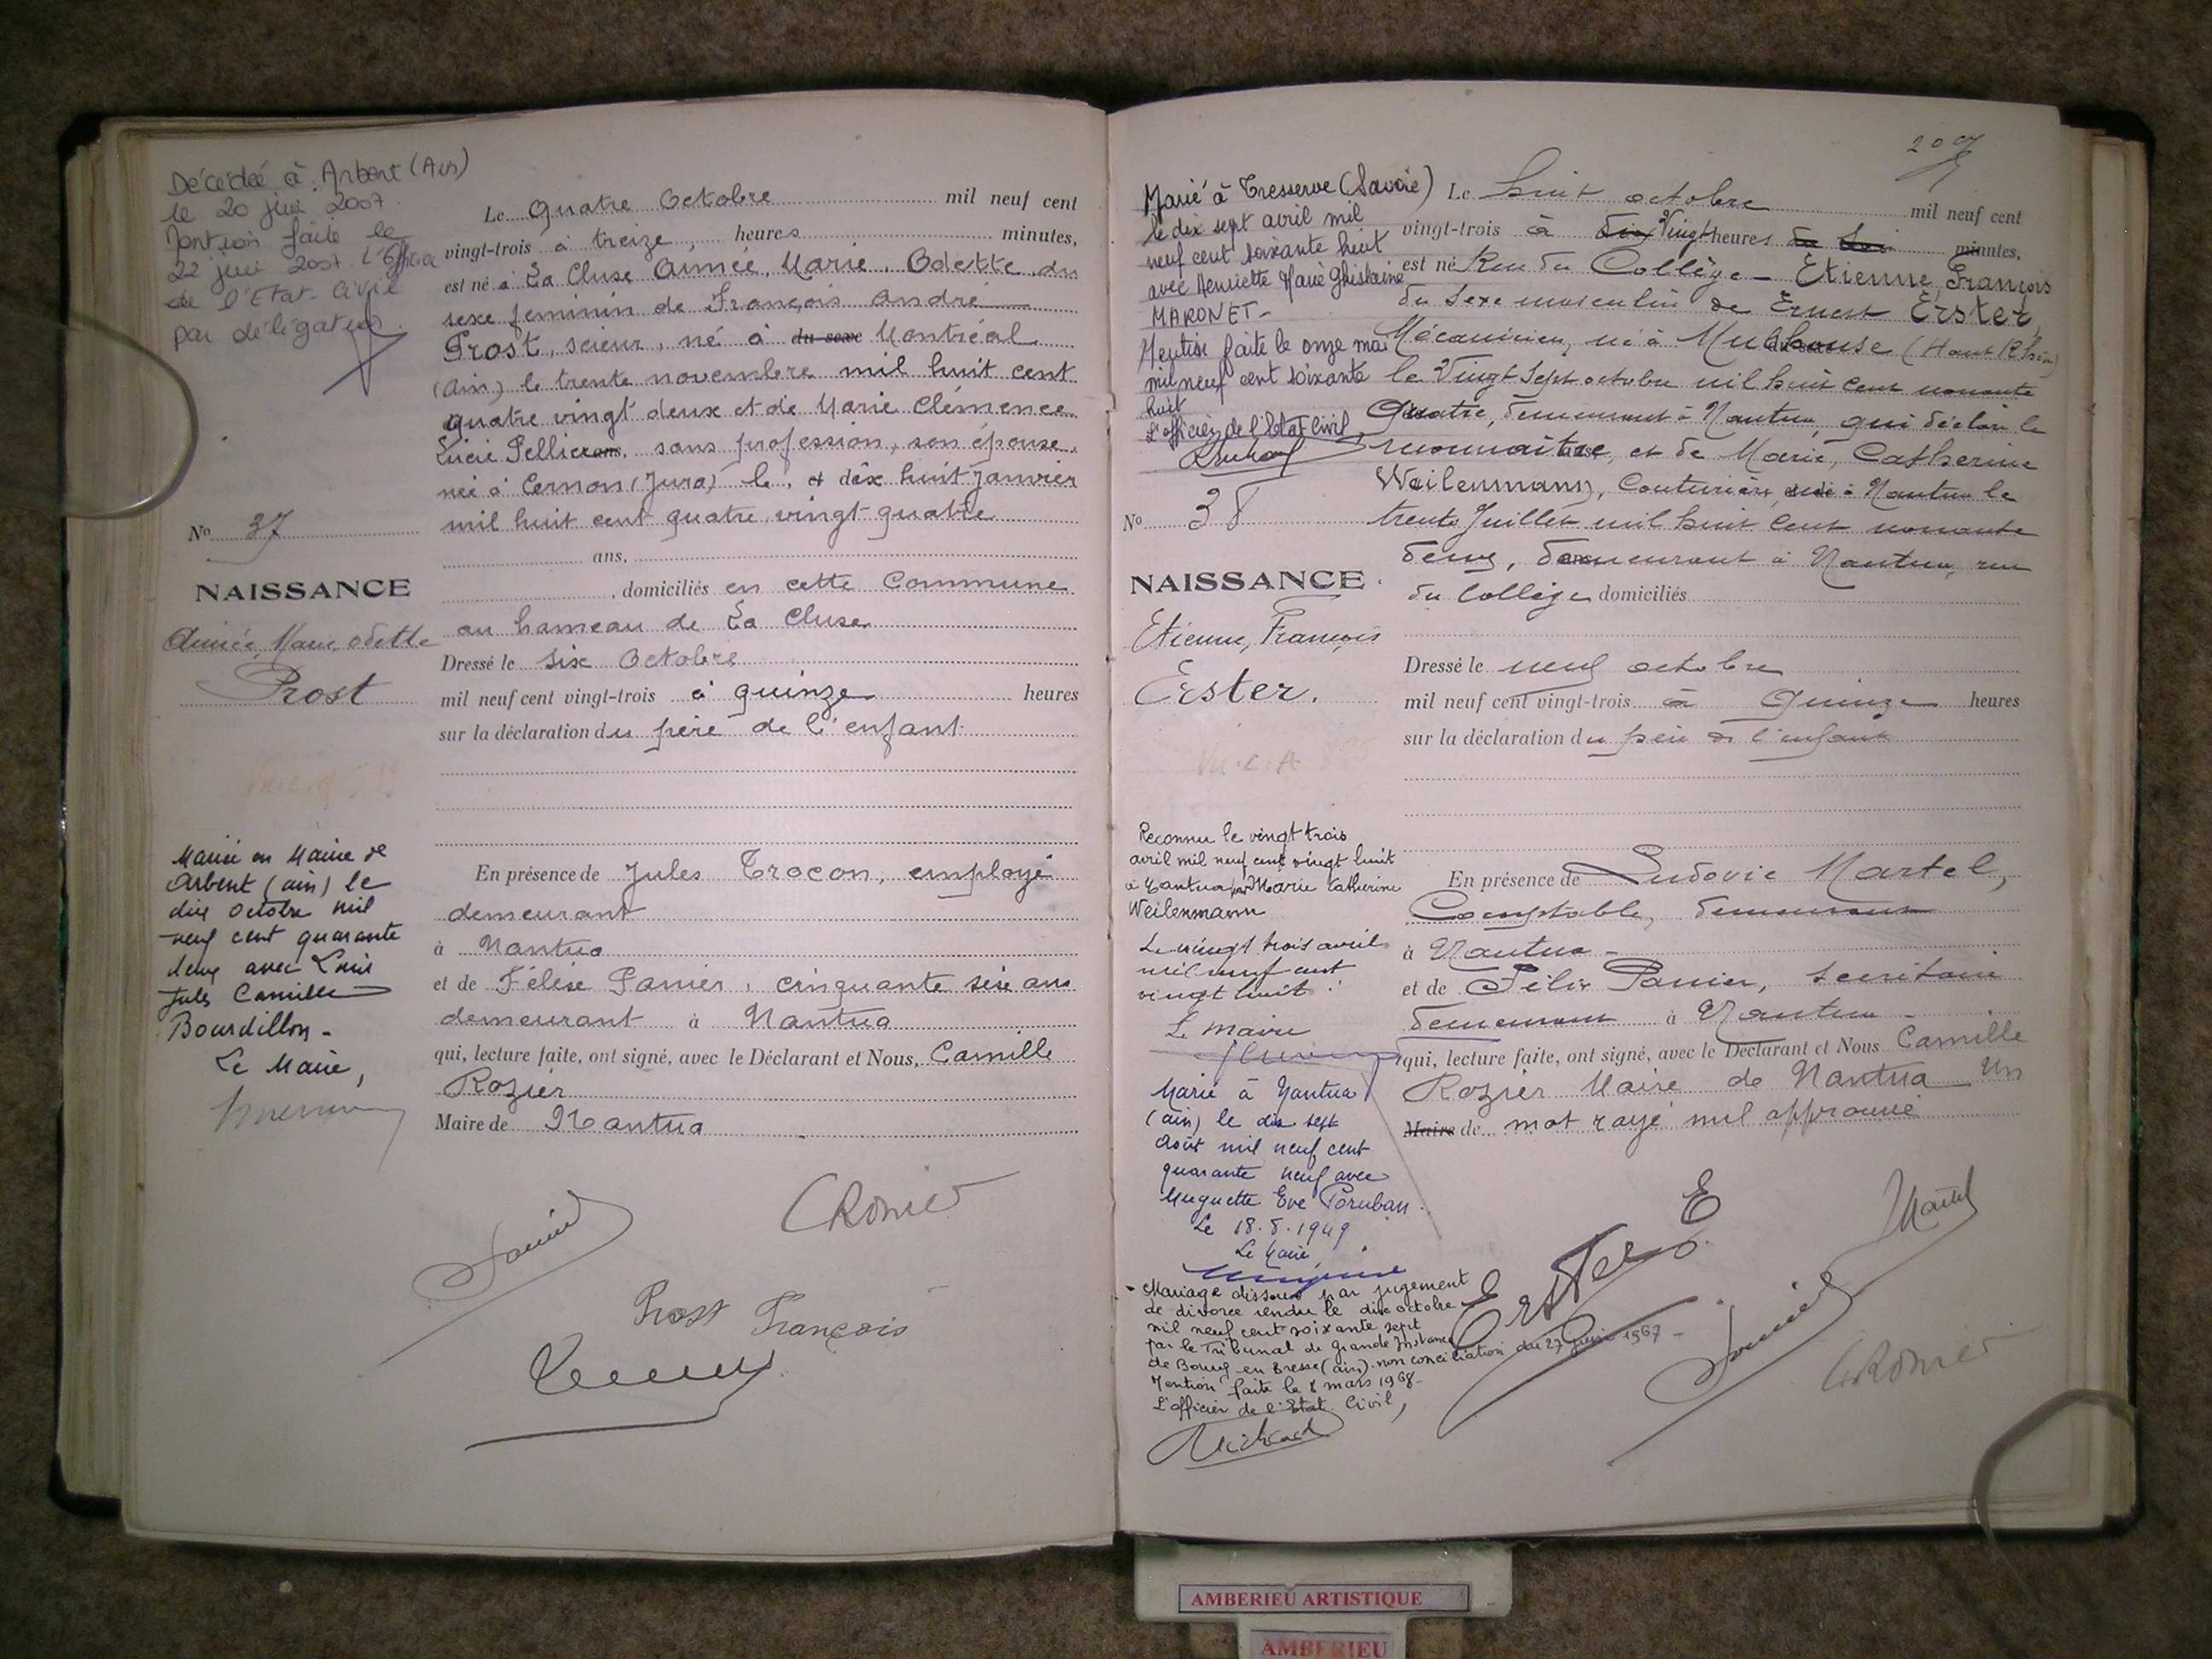 Décédée à Arbent (Ain)
le 20 juin 2007.
Mention faite le
22 juin 2007. L'Officier
de l'Etat-Civil
par délégation.
No 37
NAISSANCE
Aimée, Marie, Odette
Prost
Mariée en Mairie de
Arbent (ain) le
dix Octobre mil
neuf cent quarante
deux avec Louis
Jules Camille
Bourdillon -
Le Maire,
Le Quatre Octobre mil neuf cent
vingt-trois à treize, heures minutes,
est né à La Cluse Aimée, Marie, Odette du
sexe féminin de François André
Prost, scieur, né à du sexe Montréal
(Ain) le trente novembre mil huit cent
quatre vingt deux et de Marie Clémence
Lucie Pellier, sans profession, son épouse,
née à Cernon (Jura) le dix huit Janvier
mil huit cent quatre vingt quatre
ans,
, domiciliés en cette Commune
au hameau de La Cluse
Dressé le six Octobre
mil neuf cent vingt-trois à quinze heures
sur la déclaration du père de l'enfant
En présence de Jules Trocon, employé
demeurant
à Nantua
et de Félix Panier, cinquante six ans
demeurant à Nantua
qui, lecture faite, ont signé, avec le Déclarant et Nous, Camille
Rozier
Maire de Nantua
Panier
CRozier
Prost François
Marié à Tresserve (Savoie)
le dix sept avril mil
neuf cent soixante huit
avec Henriette Marie Ghislaine
MARONET -
Mention faite le onze mai
mil neuf cent soixante
huit
L'officier de l'Etat Civil,
No 38
NAISSANCE
Etienne, François
Ester.
Reconnu le vingt trois
avril mil neuf cent vingt huit
à Nantua par Marie Catherine
Weilenmann
Le vingt trois avril
mil neuf cent
vingt huit.
Le maire
Marié à Nantua
(ain) le dix sept
Août mil neuf cent
quarante neuf avec
Muguette Eve Poruban.
Le 18.8.1949
Le Maire
- Mariage dissous par jugement
de divorce rendu le dix octobre
mil neuf cent soixante sept
par le Tribunal de Grande Instance
de Bourg en Bresse (ain). non conciliation du 27 juin 1967 -
Mention faite le 8 mars 1968 -
L'officier de l'Etat Civil,
Le huit octobre mil neuf cent
vingt-trois à dix Vingt heures minutes,
est né Rue du Collège - Etienne, François
du sexe masculin de Ernest Erster,
Mécanicien, né à Mulhouse (Haut Rhin)
le Vingt Sept octobre mil huit cent nonante
Quatre, demeurant à Nantua, qui déclare le
reconnaître, et de Marie, Catherine
Weilenmann, Couturière, née à Nantua le
trente Juillet mil huit cent nonante
deux, demeurant à Nantua, rue
du Collège domiciliés
Dressé le neuf octobre
mil neuf cent vingt-trois à Quinze heures
sur la déclaration du père de l'enfant
En présence de Ludovic Martel,
Comptable, demeurant
à Nantua -
et de Félix Panier, secrétaire
demeurant à Nantua -
qui, lecture faite, ont signé, avec le Déclarant et Nous Camille
Rozier Maire de Nantua Un
Maire de mot rayé nul approuvé
Martel
Erster E
Panier
CRozier
AMBERIEU ARTISTIQUE
AMBERIEU